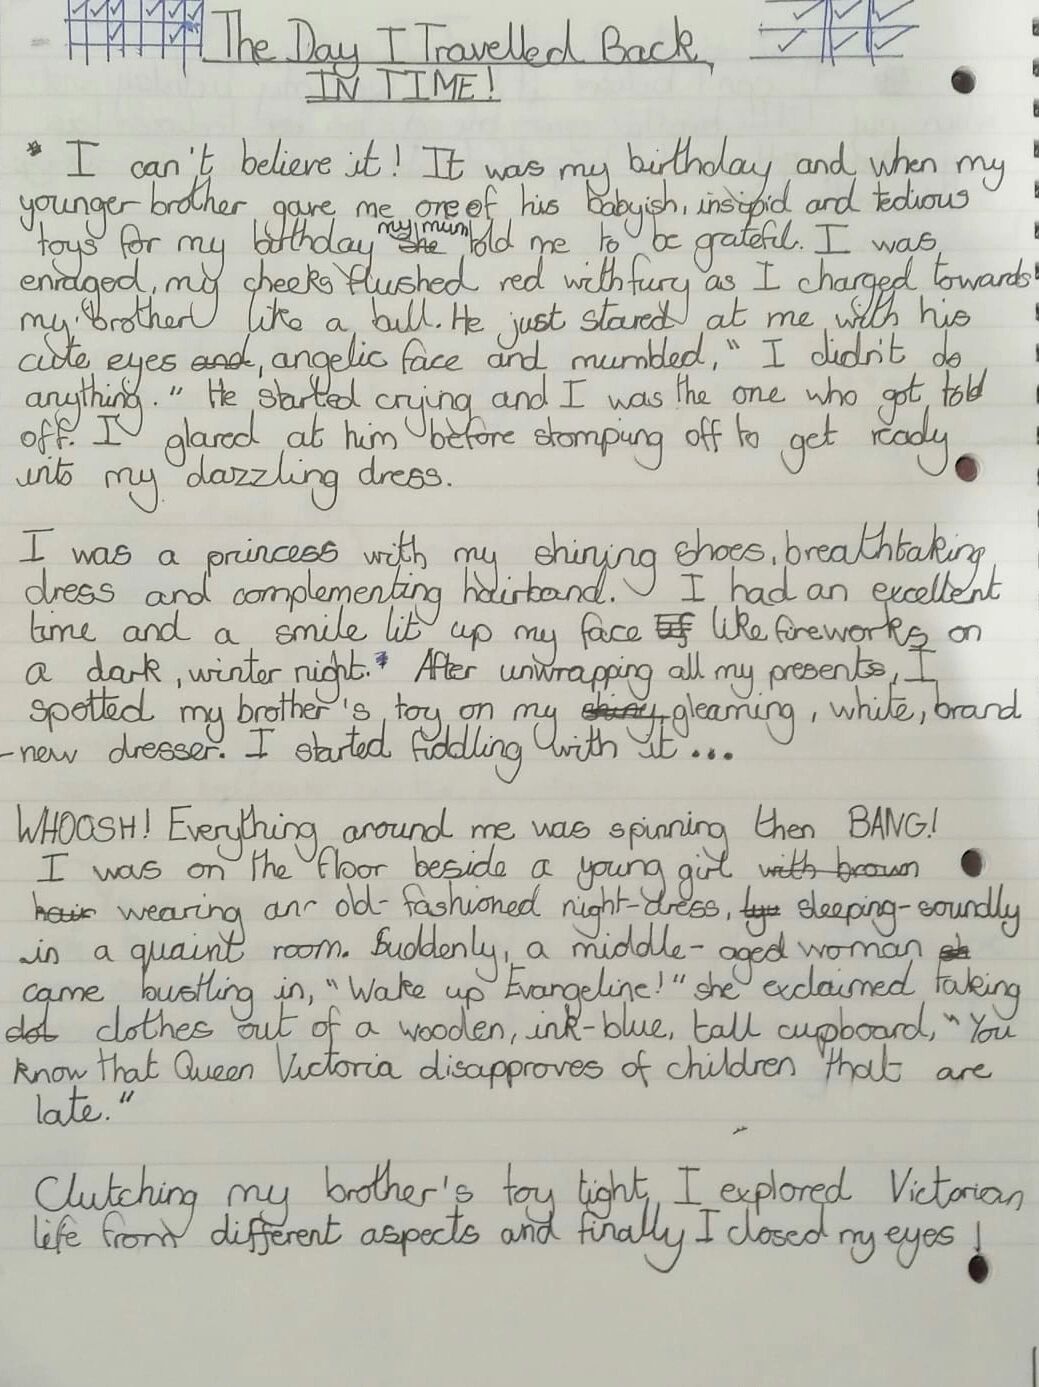 The Day I Travelled Back
IN TIME!
* I can't believe it! It was my birthday and when my
younger brother gave me one of his babyish, insipid and tedious
toys for my birthday she my mum told me to be grateful. I was
enraged, my cheeks flushed red with fury as I charged towards
my brother like a bull. He just stared at me with his
cute eyes and, angelic face and mumbled, "I didn't do
anything." He started crying and I was the one who got told
off. I glared at him before stomping off to get ready
into my dazzling dress.
I was a princess with my shining shoes, breathtaking
dress and complementing hairband. I had an excellent
time and a smile lit up my face like fireworks on
a dark, winter night.* After unwrapping all my presents, I
spotted my brother's toy on my shiny, gleaming, white, brand
-new dresser. I started fiddling with it ...
WHOOSH! Everything around me was spinning then BANG!
I was on the floor beside a young girl with brown
hair wearing an old-fashioned night-dress, sleeping-soundly
in a quaint room. Suddenly, a middle-aged woman sh
came bustling in, "Wake up Evangeline!" she exclaimed taking
clothes out of a wooden, ink-blue, tall cupboard, "You
know that Queen Victoria disapproves of children that are
late."
Clutching my brother's toy tight, I explored Victorian
life from different aspects and finally I closed my eyes!